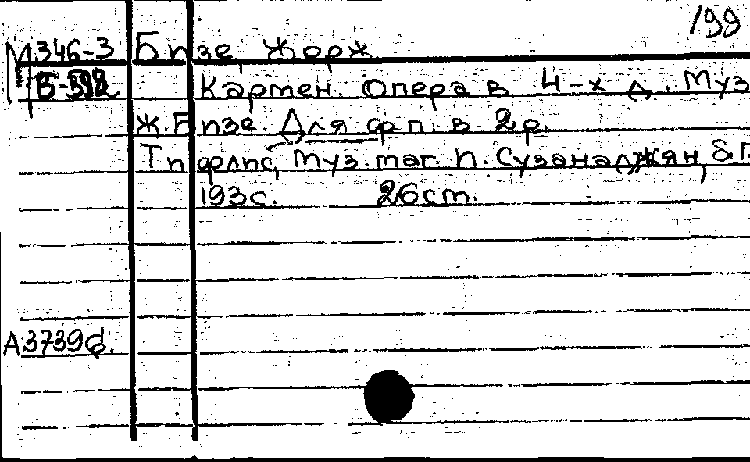 199
М346-3 Бизе, Жорж
Б-592 Кармен. Опера в 4-х д. Муз
Ж Бизе. Для фп. в 2 р.
Тифлис, Муз. маг. П. Сузанаджян, б.г.
193с. 26 cm.
А3739ф.